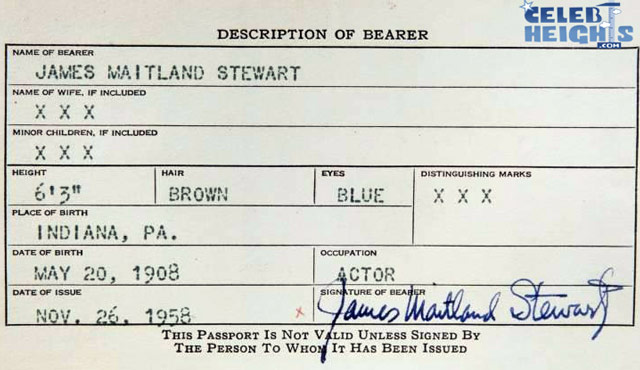 CELEB HEIGHTS .COM
DESCRIPTION OF BEARER
NAME OF BEARER
JAMES MAITLAND STEWART
NAME OF WIFE, IF INCLUDED
X X X
MINOR CHILDREN, IF INCLUDED
X X X
HEIGHT HAIR EYES DISTINGUISHING MARKS
6'3" BROWN BLUE X X X
PLACE OF BIRTH
INDIANA, PA.
DATE OF BIRTH OCCUPATION
MAY 20, 1908 ACTOR
DATE OF ISSUE SIGNATURE OF BEARER
NOV. 26, 1958 x James Maitland Stewart
THIS PASSPORT IS NOT VALID UNLESS SIGNED BY
THE PERSON TO WHOM IT HAS BEEN ISSUED